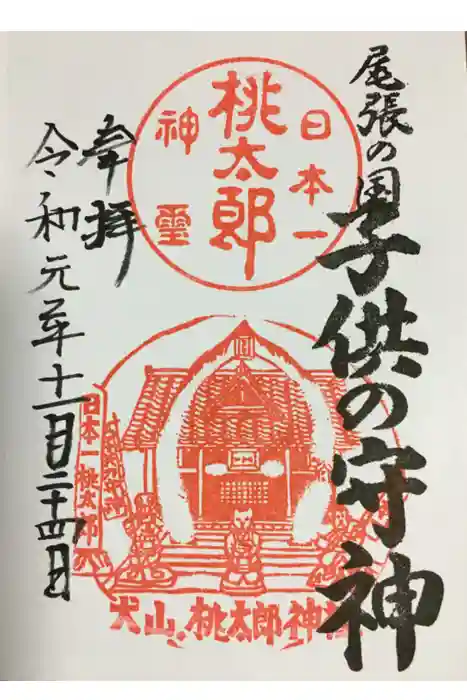 尾張の国
子供の守神
日本一
桃太郎
神霊
奉拝
令和元年十一月二十四日
日本一桃太郎
犬山、桃太郎神社